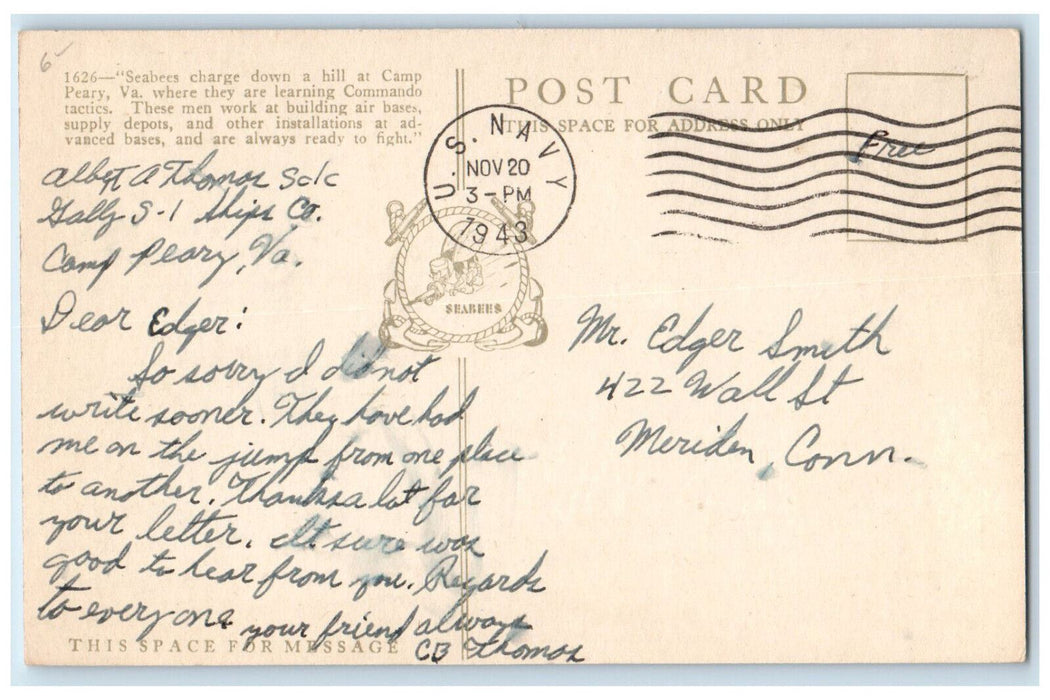 6
1626—"Seabees charge down a hill at Camp
Peary, Va. where they are learning Commando
tactics. These men work at building air bases,
supply depots, and other installations at ad-
vanced bases, and are always ready to fight."
POST CARD
THIS SPACE FOR ADDRESS ONLY
U.S. NAVY
NOV 20
3-PM
1943
Free
SEABEES
Albert A Thomas Sc/c
Gally S-1 Ships Co.
Camp Peary, Va.
Dear Edger:
So sorry I did not
write sooner. They have had
me on the jump from one place
to another. Thanks a lot for
your letter. It sure was
good to hear from you. Regards
to everyone
your friend always
CB Thomas
THIS SPACE FOR MESSAGE
Mr. Edger Smith
422 Wall St
Meriden, Conn.